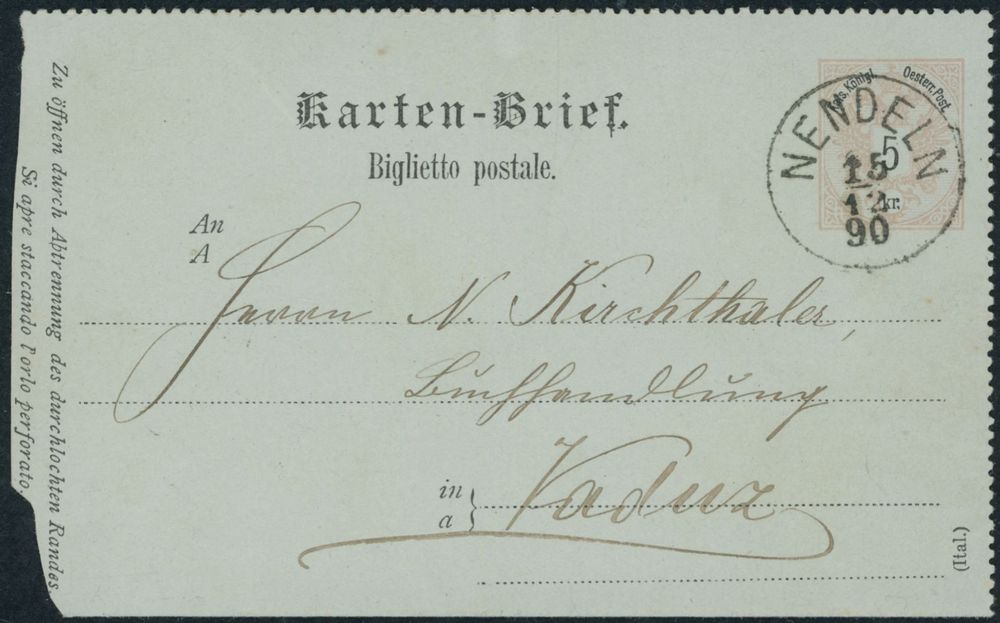 Karten-Brief.
Biglietto postale.
Kais. Königl. Oesterr. Post.
5
kr.
NENDELN
15
12
90
An
A
Herrn N. Kirchthaler,
Buchhandlung
in
a
Vaduz
(Ital.)
Zu öffnen durch Abtrennung des durchlochten Randes
Si apre staccando l'orlo perforato